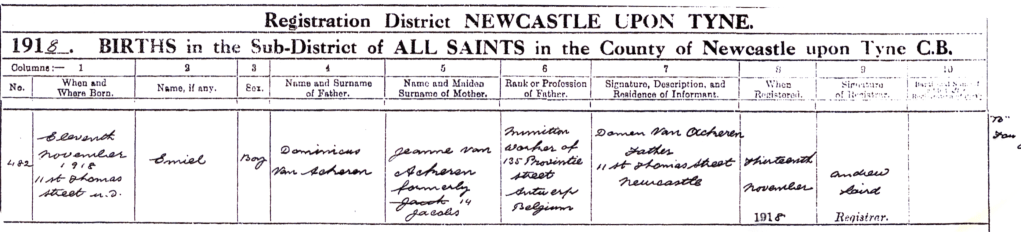 Registration District NEWCASTLE UPON TYNE.
1918. BIRTHS in the Sub-District of ALL SAINTS in the County of Newcastle upon Tyne C.B.
Columns:— 1 2 3 4 5 6 7 8 9 10
No. When and Where Born. Name, if any. Sex. Name and Surname of Father. Name and Maiden Surname of Mother. Rank or Profession of Father. Signature, Description, and Residence of Informant. When Registered. Signature of Registrar.
482
Eleventh
November
1918
11 St Thomas
Street U.D.
Emiel
Boy
Dominicus
Van Acheren
Jeanne Van
Acheren
formerly
Jacob 14
Jacobs
Munition
Worker of
135 Provintie
Street
Antwerp
Belgium
Damen Van Acheren
Father
11 St Thomas Street
Newcastle
Thirteenth
November
1918
Andrew
Laird
Registrar.